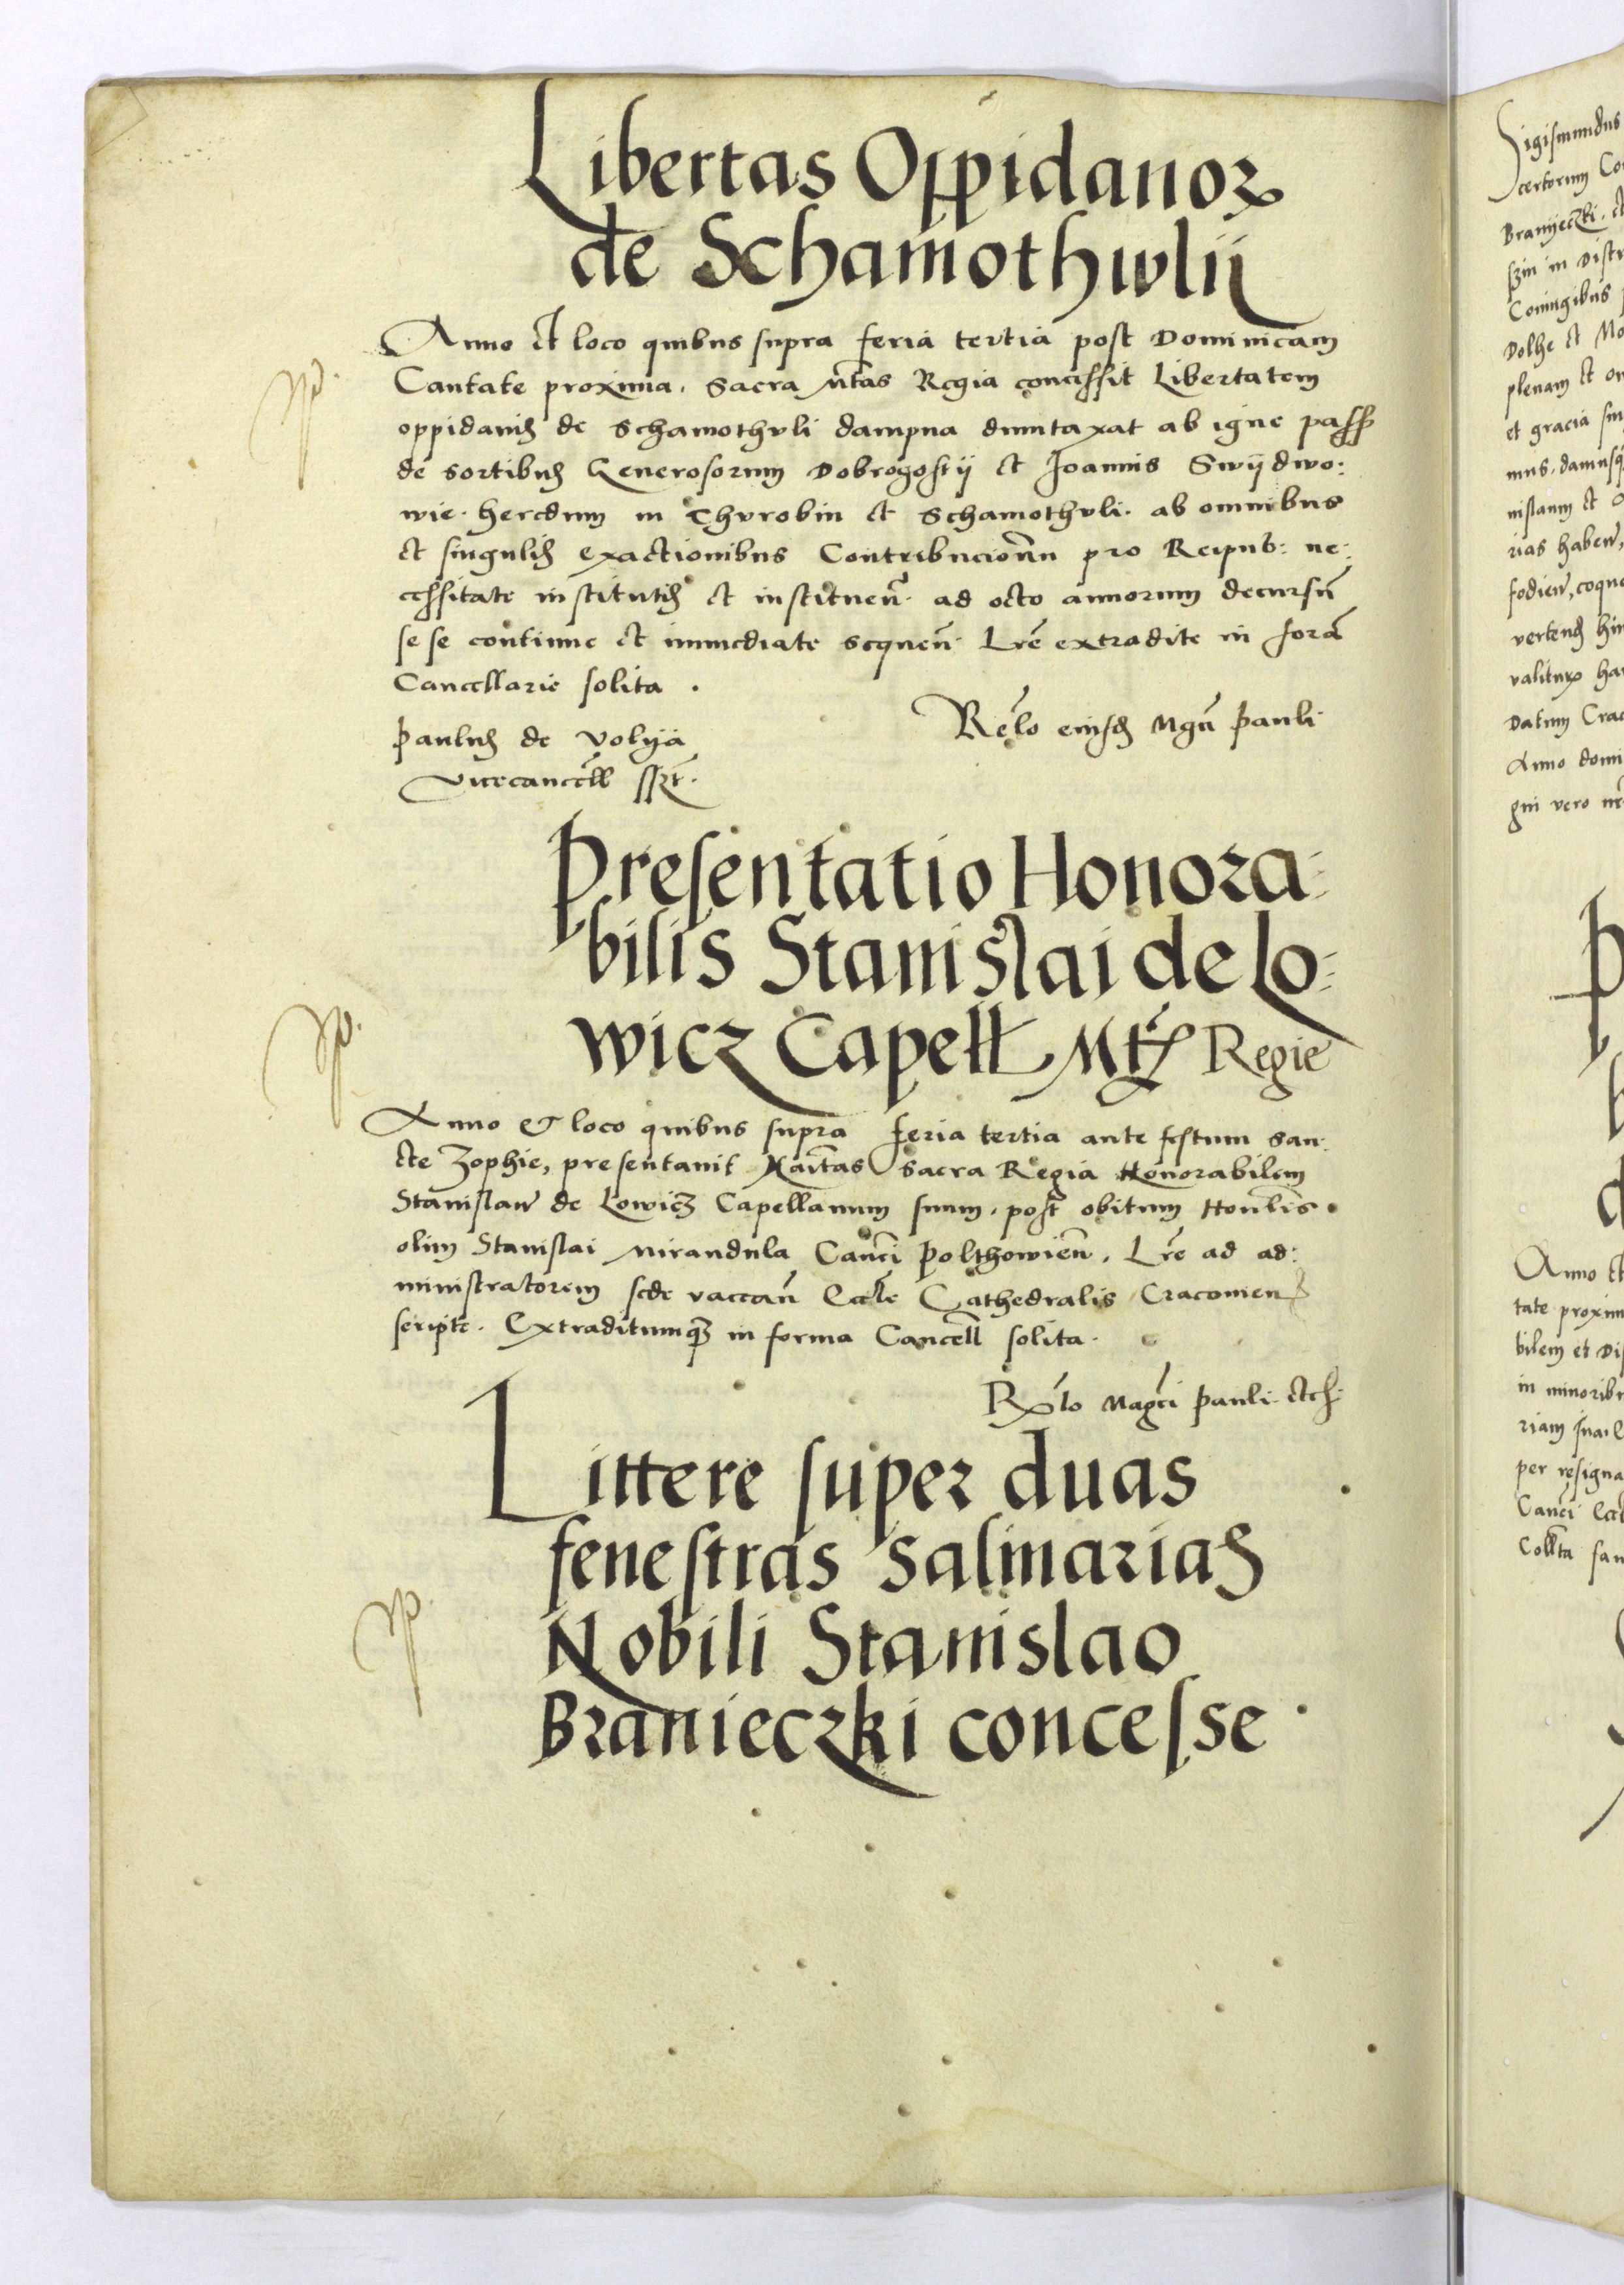 Libertas Oppidanoꝝ
de Schamothwlij
Anno et loco quibus supra feria tertia post Dominicam
Cantate proxima. Sacra Mtas Regia concessit Libertatem
oppidanis de Schamothvli dampna dumtaxat ab igne pass
de sortibus Generosorum Dobrogostij et Joannis Swydwo:
wie. heredum in Thvrobin et Schamothvli. ab omnibus
et singulis exactionibus Contribucionũ pro Reipub: ne:
cessitate institutis et instituen̄. ad octo annorum decursũ
se se continue et immediate sequen̄. Lr̃e extradite in forã
Cancellarie solita.
Paulus de Volya
Vicecancell̃ sszt.
Rel̃o eiusdẽ Mgci Pauli
Presentatio Honora:
bilis Stanislai de Lo:
wicz Capell Mtis Regie
Anno et loco quibus supra feria tertia ante festum San:
cte Zophie, presentauit Maitas Sacra Regia Honorabilem
Stanislaũ de Lowicz Capellanum suum. post obitum Honlis
olim Stanislai Mirandula Canci Polthowien̄. Lr̃e ad ad:
ministratorem sede vaccan̄ Eccl̃e Cathedralis Cracouien
scripte. Extraditumqꝫ in forma Cancell̃ solita.
Rel̃o Magci Pauli etc
Littere super duas
fenestras salinarias
Nobili Stanislao
Branieczki concesse.
Sigismundus
certorum
Branyeczki.
in Distr
Coniugibus
Dolhe et
plenam et
et gracia
mus. damusqꝫ
et
rias haben̄,
fodien̄, coqu
valituꝝ
Datum Crac
Anno domi
gni vero
Anno et
tate proxim
bilem et
in minorib
riam
per resigna
Canci
Coll̃ta san